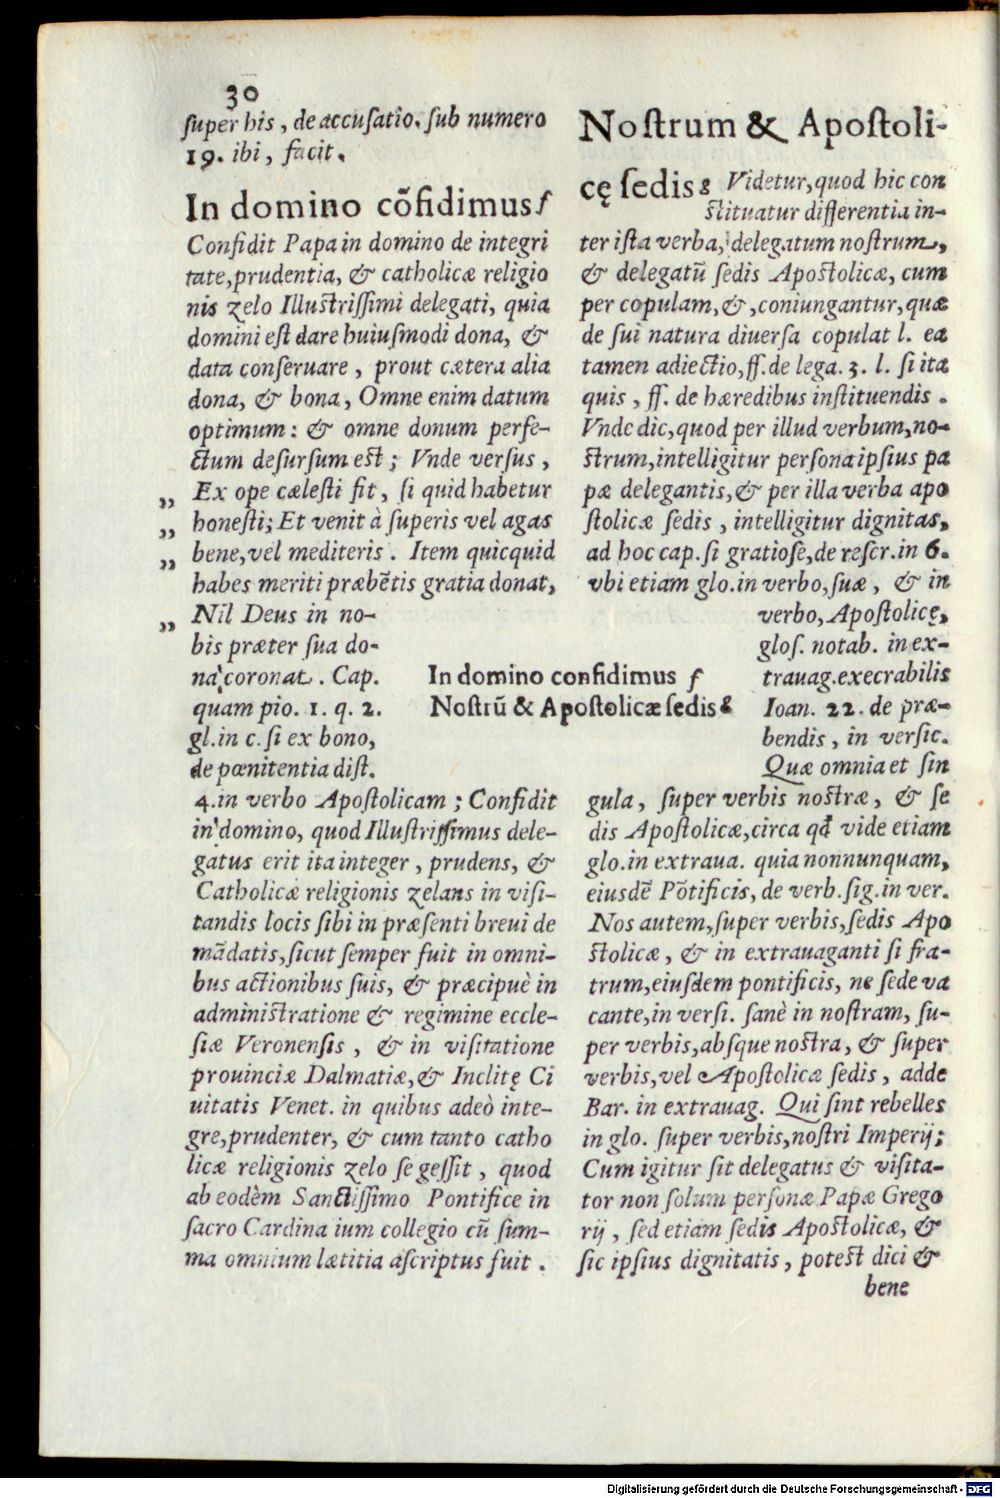 30
ſuper his, de accuſatio. ſub numero
19. ibi, facit.
In domino cõfidimus f
Confidit Papa in domino de integri
tate, prudentia, & catholicæ religio
nis zelo Illuſtriſſimi delegati, quia
domini eſt dare huiuſmodi dona, &
data conſeruare, prout cætera alia
dona, & bona, Omne enim datum
optimum: & omne donum perfe-
ctum deſurſum eſt; Vnde verſus,
„ Ex ope cæleſti fit, ſi quid habetur
„ honeſti; Et venit à ſuperis vel agas
„ bene, vel mediteris. Item quicquid
habes meriti præbẽtis gratia donat,
„ Nil Deus in no-
bis præter ſua do-
na coronat. Cap.
quam pio. 1. q. 2.
gl. in c. ſi ex bono,
de pœnitentia diſt.
4. in verbo Apoſtolicam; Confidit
in domino, quod Illuſtriſſimus dele-
gatus erit ita integer, prudens, &
Catholicæ religionis zelans in viſi-
tandis locis ſibi in præſenti breui de
mãdatis, ſicut ſemper fuit in omni-
bus actionibus ſuis, & præcipuè in
adminiſtratione & regimine eccle-
ſiæ Veronenſis, & in viſitatione
prouinciæ Dalmatiæ, & Inclitę Ci
uitatis Venet. in quibus adeò inte-
gre, prudenter, & cum tanto catho
licæ religionis zelo ſe geſſit, quod
ab eodèm Sanctiſſimo Pontifice in
ſacro Cardina ium collegio cũ ſum-
ma omnium lætitia aſcriptus fuit.
In domino confidimus f
Noſtrũ & Apoſtolicæ ſedis g
Noſtrum & Apoſtoli-
cę ſedis g Videtur, quod hic con
ſtituatur differentia in-
ter iſta verba, delegatum noſtrum,
& delegatũ ſedis Apoſtolicæ, cum
per copulam, &, coniungantur, quæ
de ſui natura diuerſa copulat l. ea
tamen adiectio, ff. de lega. 3. l. ſi ita
quis, ff. de hæredibus inſtituendis.
Vnde dic, quod per illud verbum, no-
ſtrum, intelligitur perſona ipſius pa
pæ delegantis, & per illa verba apo
ſtolicæ ſedis, intelligitur dignitas,
ad hoc cap. ſi gratioſe, de reſcr. in 6.
vbi etiam glo. in verbo, ſuæ, & in
verbo, Apoſtolicę,
gloſ. notab. in ex-
trauag. execrabilis
Ioan. 22. de præ-
bendis, in verſic.
Quæ omnia et ſin
gula, ſuper verbis noſtræ, & ſe
dis Apoſtolicæ, circa qđ vide etiam
glo. in extraua. quia nonnunquam,
eiuſdẽ Põtificis, de verb. ſig. in ver.
Nos autem, ſuper verbis, ſedis Apo
ſtolicæ, & in extrauaganti ſi fra-
trum, eiuſdem pontificis, ne ſede va
cante, in verſi. ſanè in noſtram, ſu-
per verbis, abſque noſtra, & ſuper
verbis, vel Apoſtolicæ ſedis, adde
Bar. in extrauag. Qui ſint rebelles
in glo. ſuper verbis, noſtri Imperij;
Cum igitur ſit delegatus & viſita-
tor non ſolum perſonæ Papæ Grego
rij, ſed etiam ſedis Apoſtolicæ, &
ſic ipſius dignitatis, poteſt dici &
bene
Digitalisierung gefördert durch die Deutsche Forschungsgemeinschaft - DFG